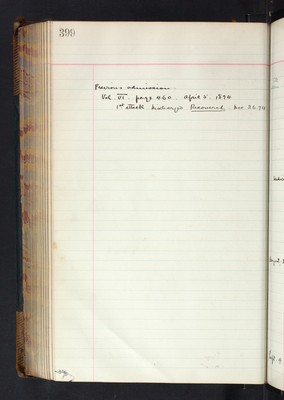 399
Previous admission.
Vol. VI. page 460. April 5. 1894
1st attack Discharged Recovered. Nov. 26. 94